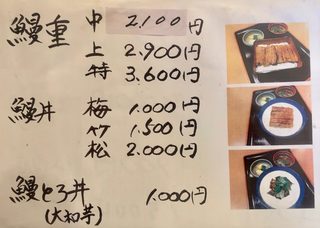 鰻重 中 2.100円
上 2.900円
特 3.600円
鰻丼 梅 1.000円
竹 1.500円
松 2.000円
鰻とろ丼 1.000円
(大和芋)